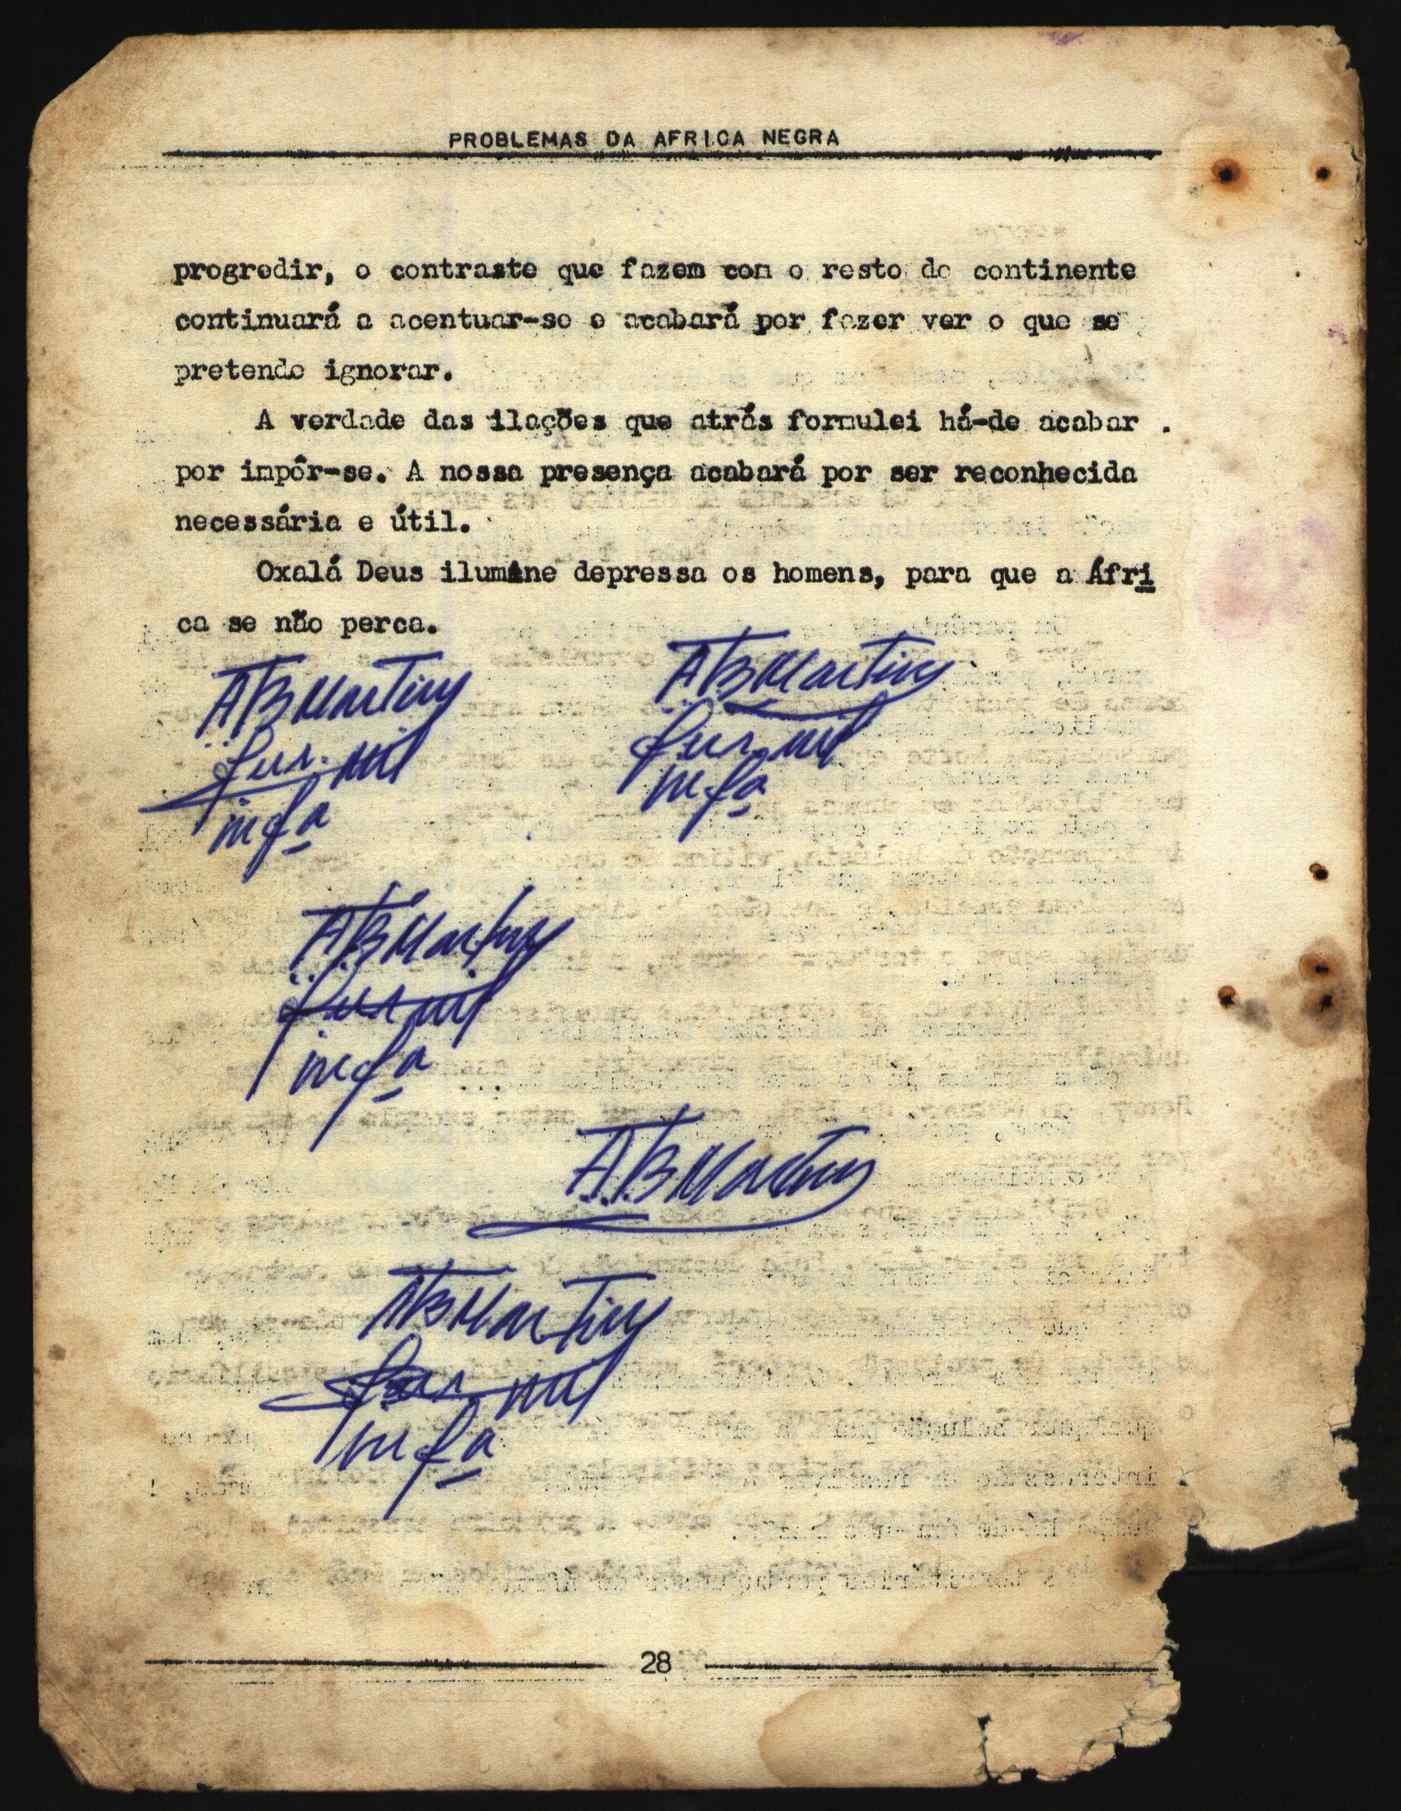 PROBLEMAS DA AFRICA NEGRA
progredir, o contraste que fazem com o resto do continente
continuará a acentuar-se e acabará por fazer ver o que se
pretende ignorar.
A verdade das ilações que atrás formulei há-de acabar
por impôr-se. A nossa presença acabará por ser reconhecida
necessária e útil.
Oxalá Deus ilumine depressa os homens, para que a Áfri
ca se não perca.
ABMartins ABMartins
fur. mil fur. mil
infa infa
ABMartins
fur mil
infa
A.B.Martins
ABMartins
fur mil
infa
28